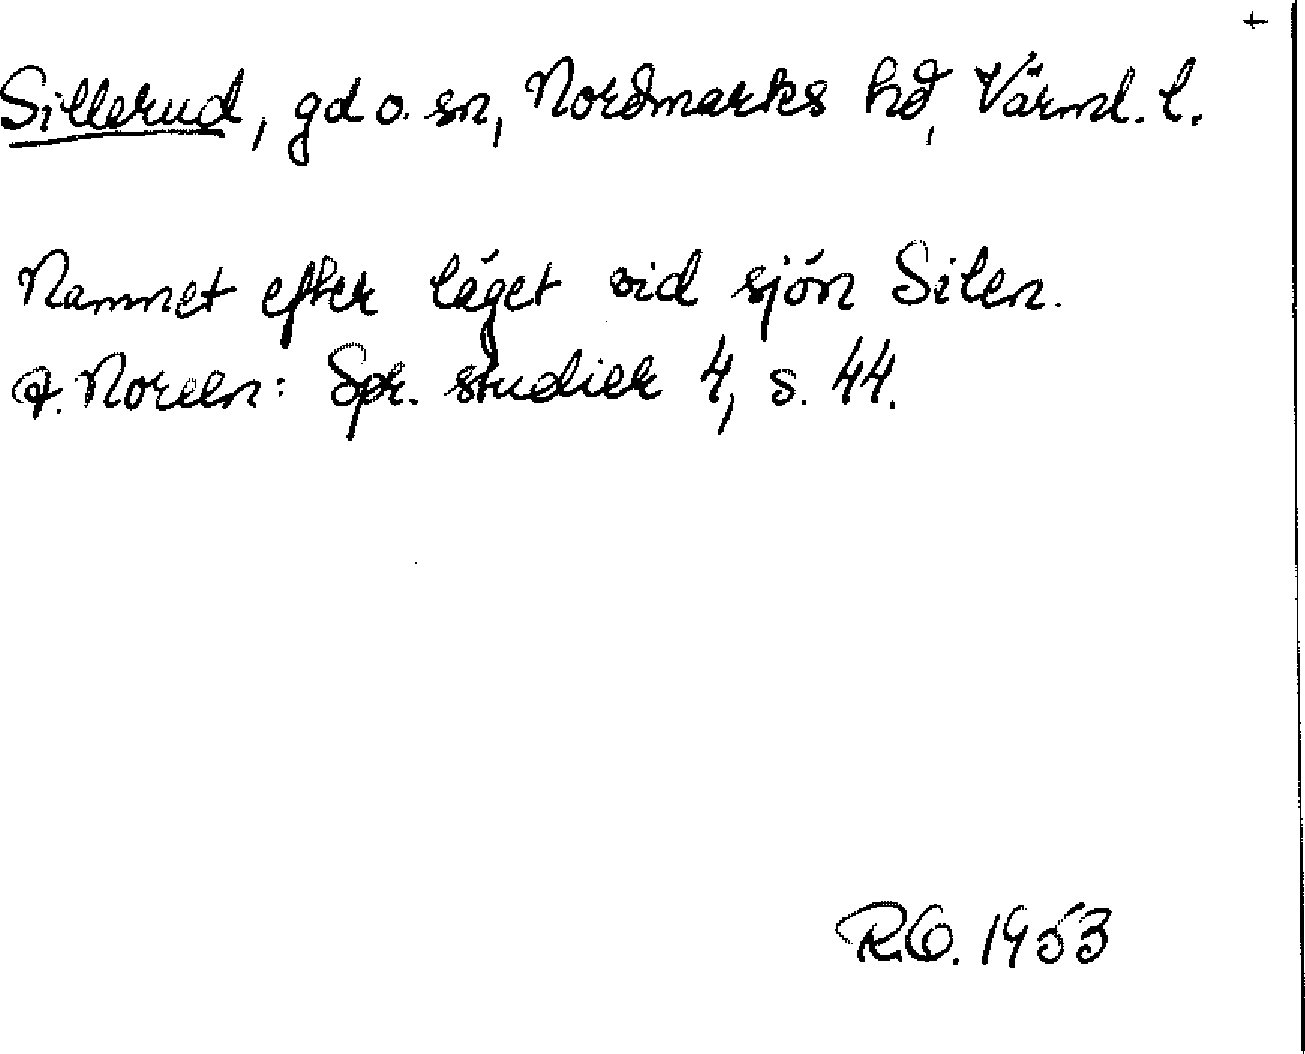 +
Sillerud, gd o. sn, Nordmarks hd, Värml. l.
Namnet efter läget vid sjön Silen.
A. Noreen: Spr. studier 4, s. 44.
R.O. 1953